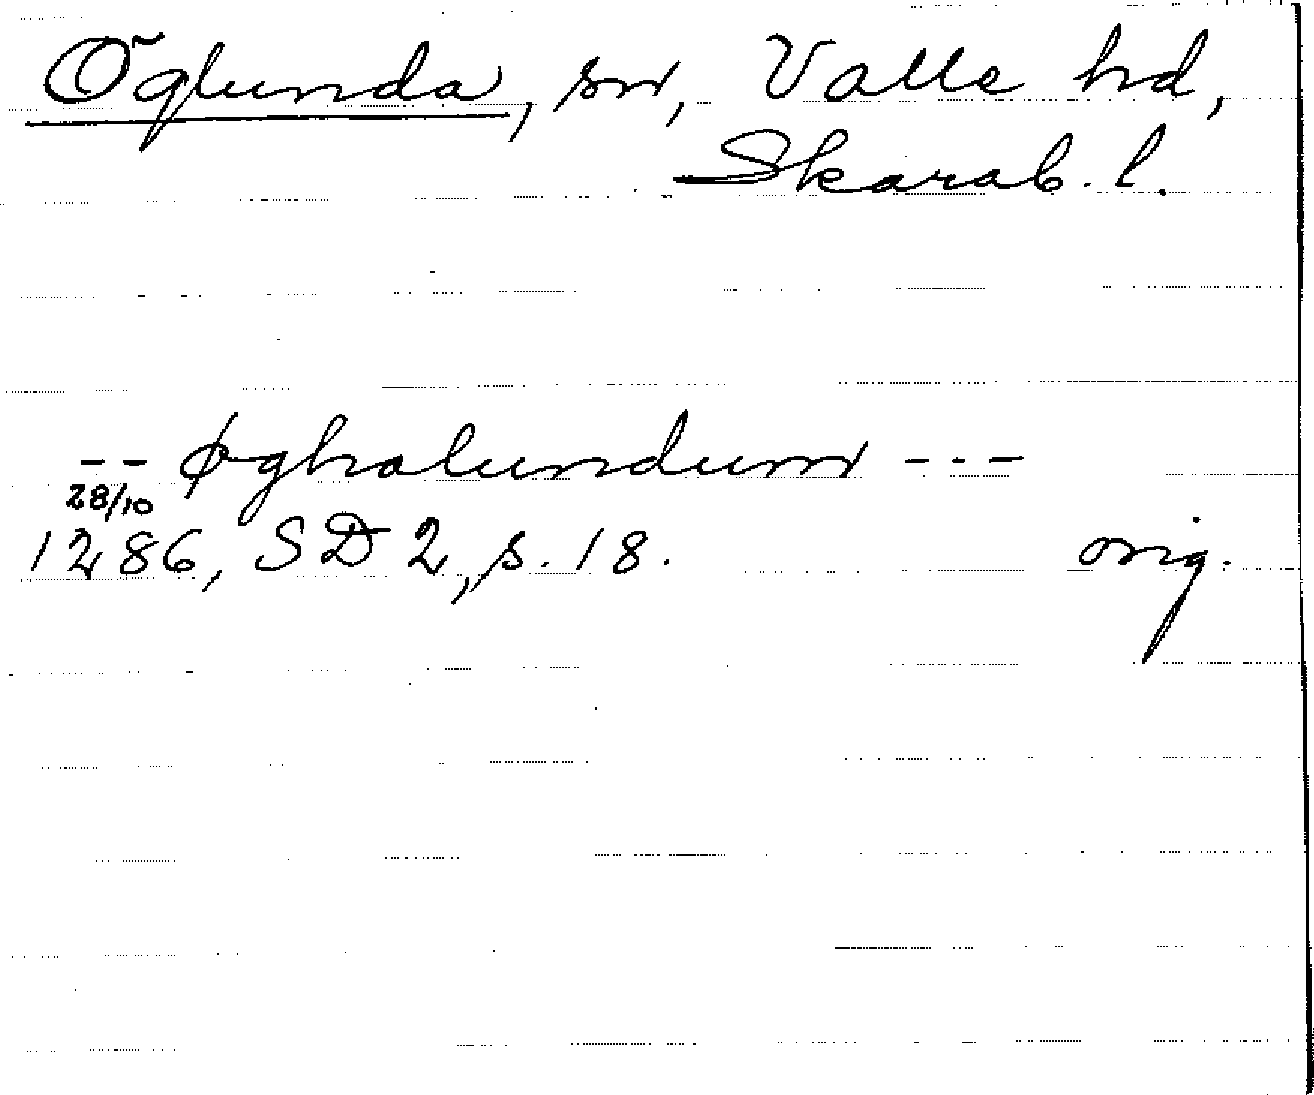 Öglunda, sn, Valle hd,
Skarab. l.
-- øghalundum ---
28/10
1286, SD 2, s. 18. orig.